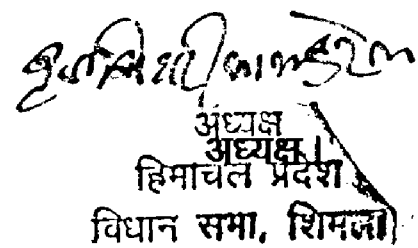 अध्यक्ष
अध्यक्ष।
हिमाचल प्रदेश
विधान सभा, शिमला